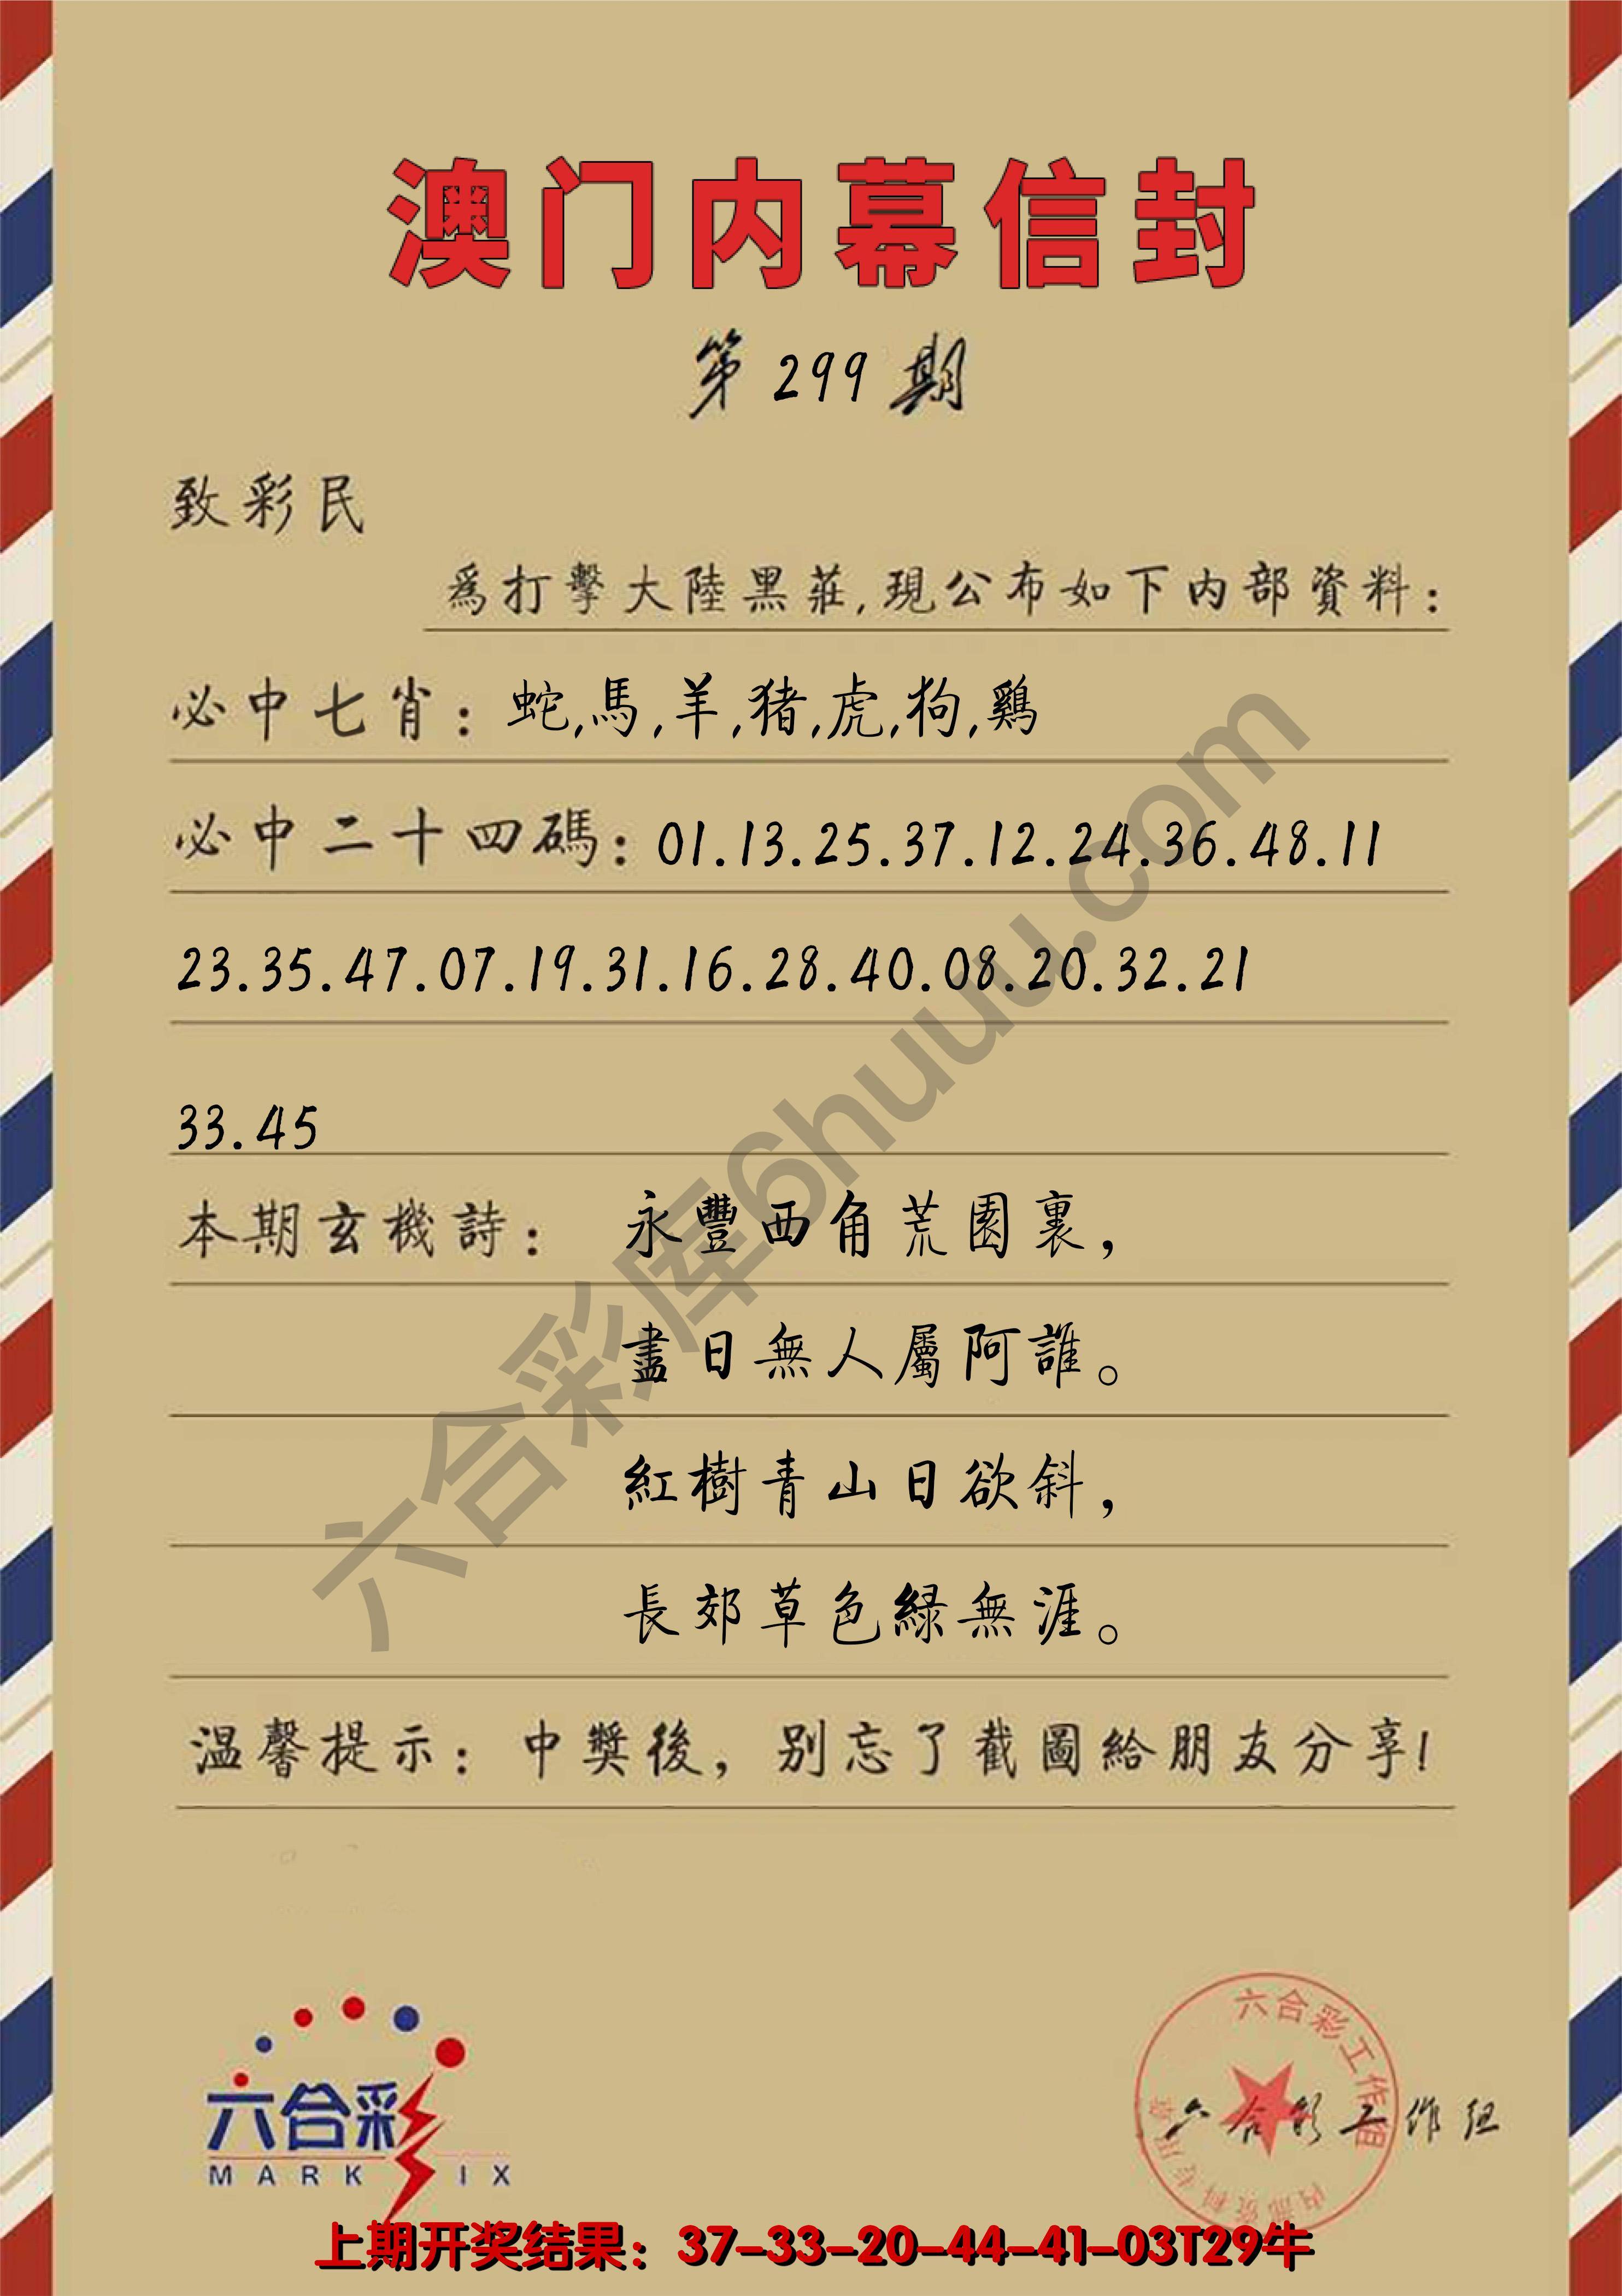 澳门内幕信封
第299期
致彩民
爲打擊大陸黑莊,現公布如下内部資料:
必中七肖: 蛇,馬,羊,猪,虎,狗,鷄
必中二十四碼: 01.13.25.37.12.24.36.48.11
23.35.47.07.19.31.16.28.40.08.20.32.21
33.45
本期玄機詩: 永豐西角荒園裏,
盡日無人屬阿誰。
紅樹青山日欲斜,
長郊草色緑無涯。
温馨提示: 中獎後, 别忘了截圖給朋友分享!
六合彩库6huuu.com
六合彩
MARK IX
六合彩工作组
内部资料专用章
六合彩工作组
上期开奖结果: 37-33-20-44-41-03T29牛